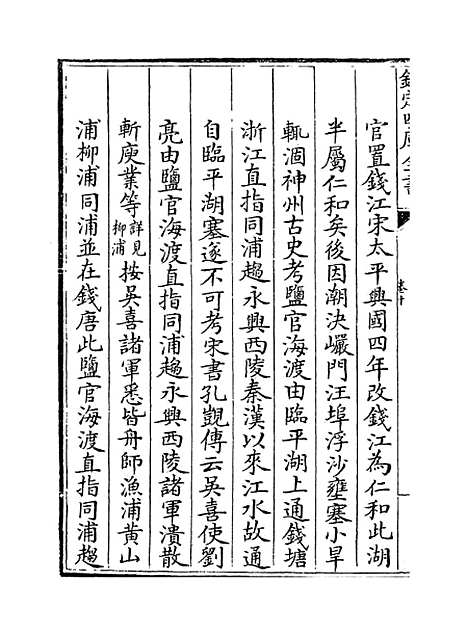 欽定四庫全書
卷十
官置錢江宋太平興國四年改錢江為仁和此湖
半屬仁和矣後因潮決巗門汪埠浮沙壅塞小旱
輒涸神州古史考鹽官海渡由臨平湖上通錢塘
浙江直指同浦趨永興西陵秦漢以來江水故通
自臨平湖塞遂不可考宋書孔覬傳云吳喜使劉
亮由鹽官海渡直指同浦趨永興西陵諸軍潰散
斬庾業等詳見柳浦按吳喜諸軍悉皆舟師漁浦黃山
浦柳浦同浦並在錢唐此鹽官海渡直指同浦趨